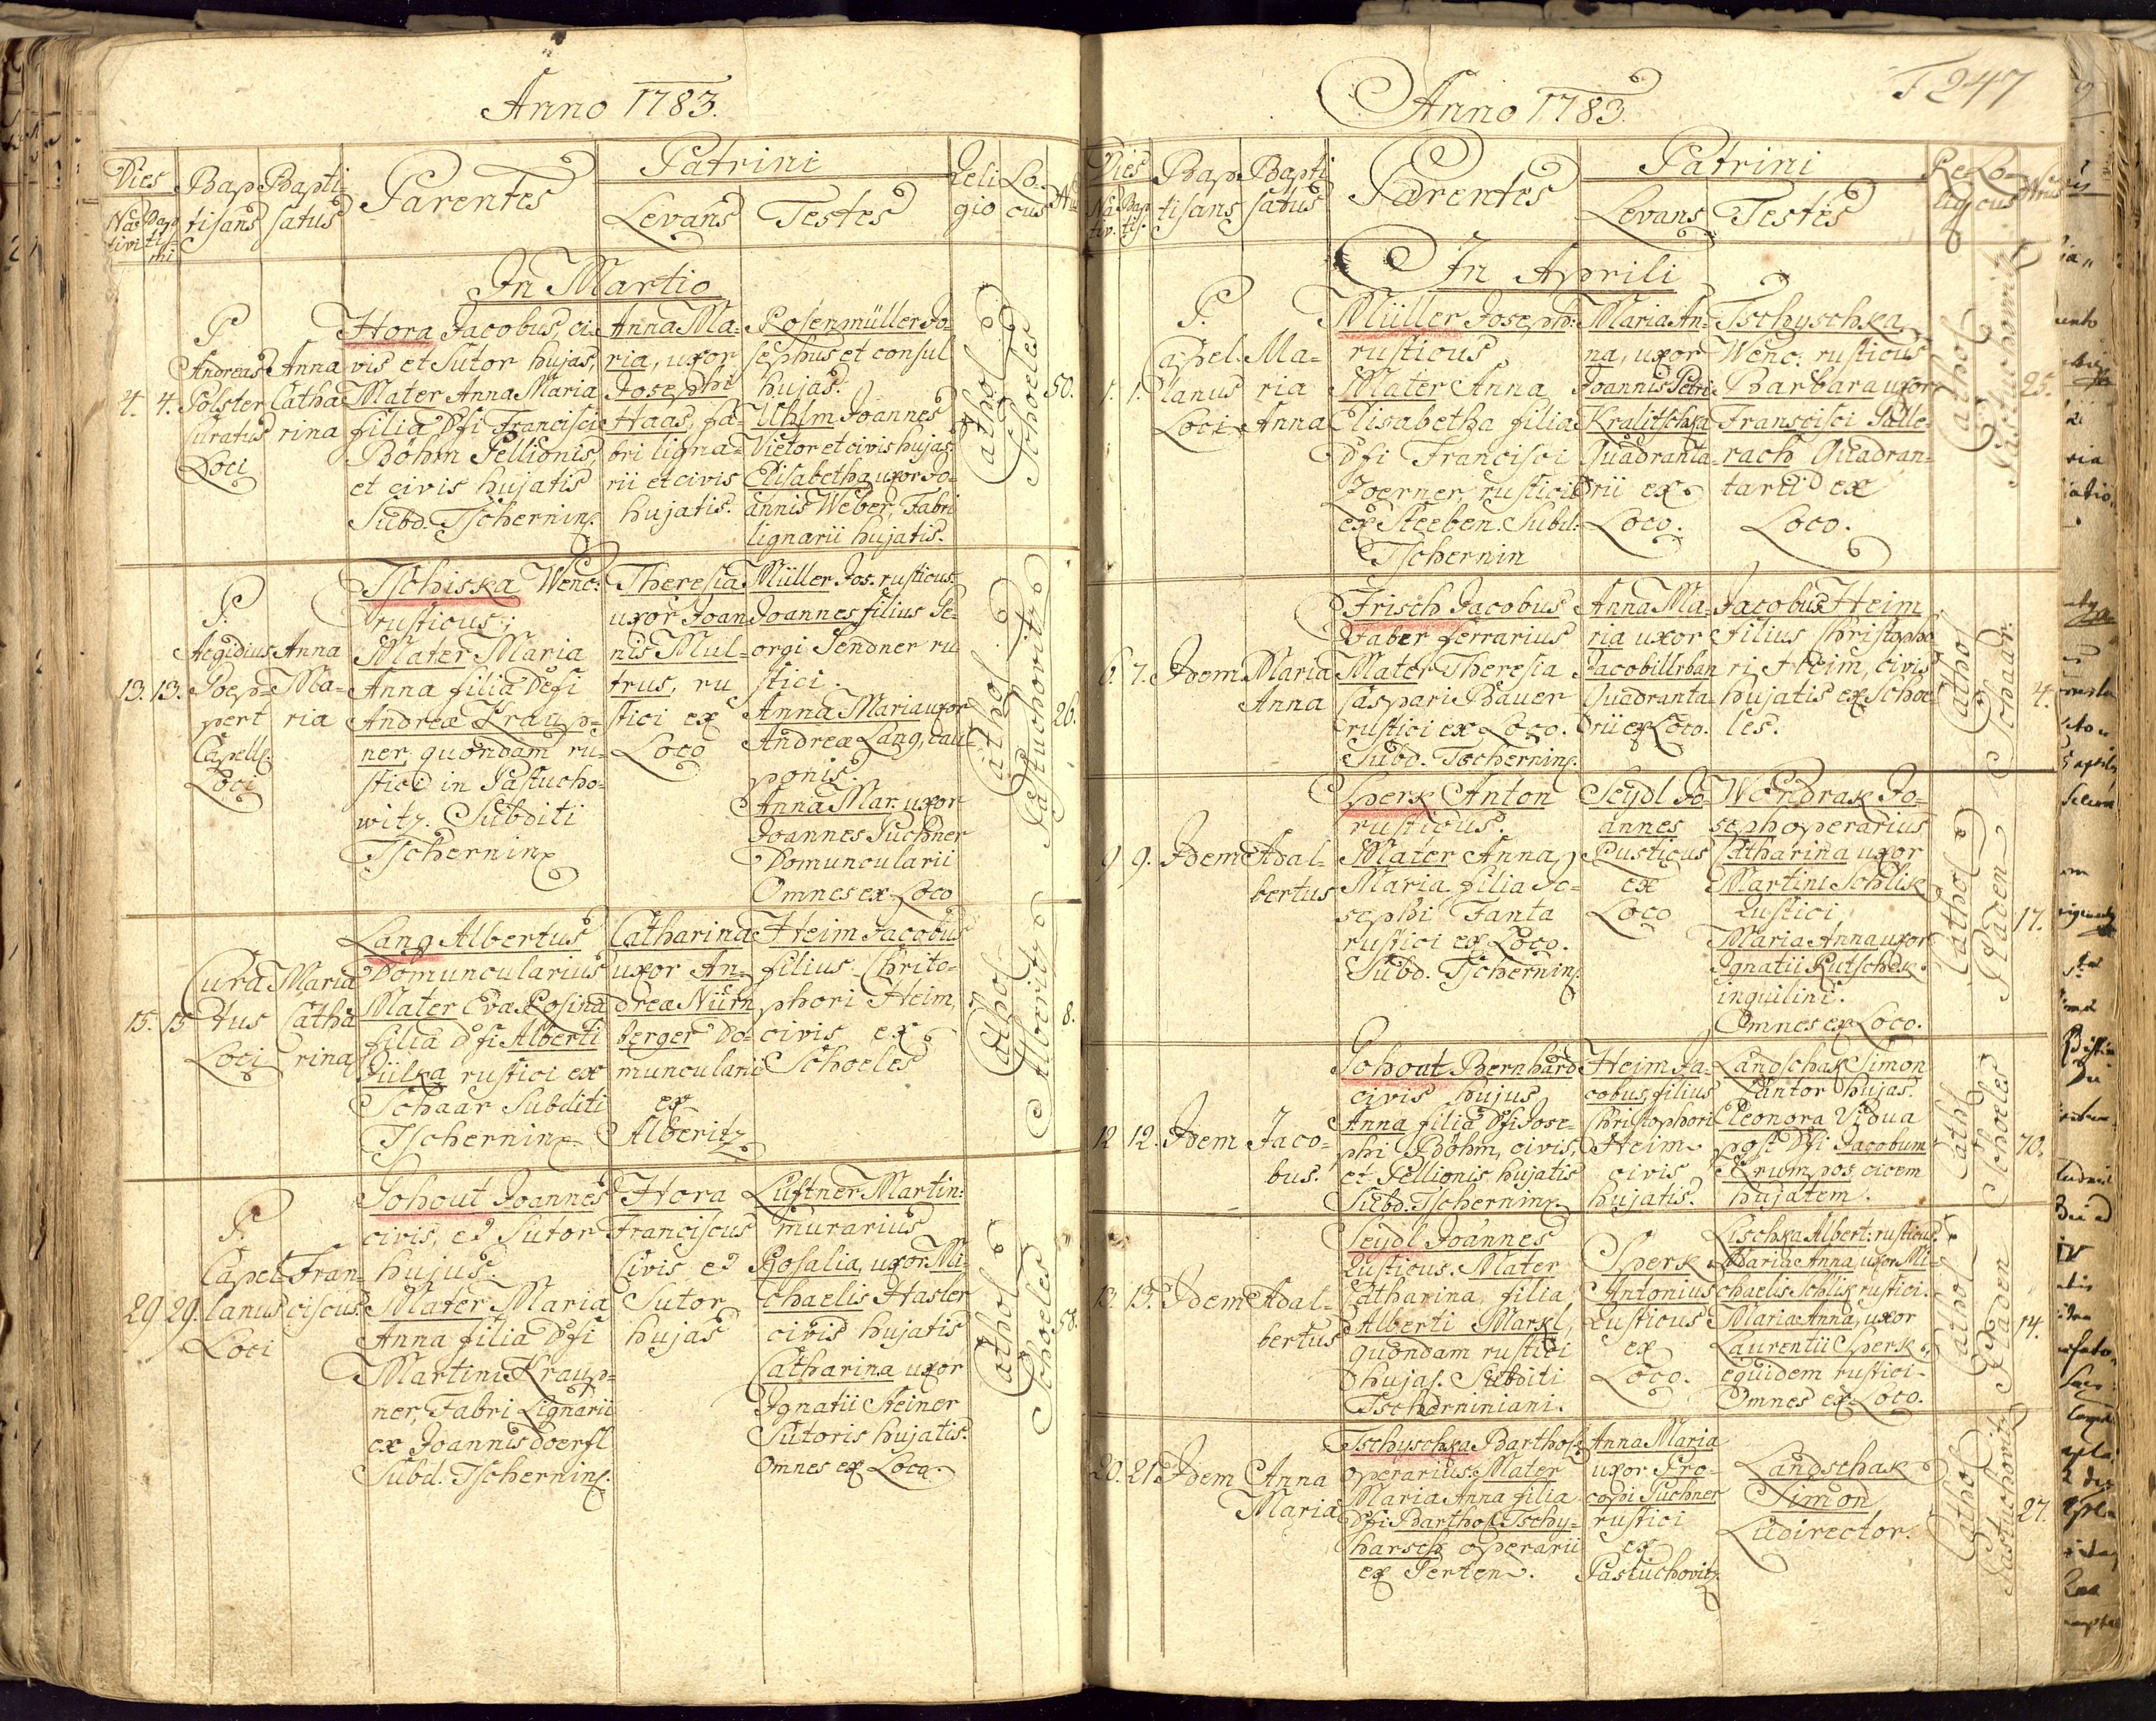 Anno 1783.
Dies
Nativitatis
Baptismi
Baptisans
Baptisatus
Parentes
Patrini
Levans
Testes
Religio
Locus
In Martio
4. 4.
P.
Andreas
Polster
Curatus
Loci
Anna
Catha
rina
Hora Jacobus, ci-
vis et Sutor hujas,
Mater Anna Maria
filia Dfi Francisci
Böhm Pellionis,
et civis hujatis
Subd. Tschernin.
Anna Ma-
ria, uxor
Josephi
Haas, fa-
bri ligna-
rii et civis
hujatis.
Rosenmüller Jo-
sephus et consul
hujas.
Uhlm Joannes
Vietor et civis hujas.
Elisabetha uxor Jo-
annis Weber, Fabri
lignarii hujatis.
Cathol
Schoeles
50.
13. 13.
P.
Aegidius
Poep-
pert
Capell.
Loci
Anna
Ma-
ria
Tschiska Wenc:
rusticus;
Mater Maria
Anna filia Dfi
Andreæ Kraup-
ner, quondam ru-
stici in Pastucho-
witz. Subditi
Tschernin
Theresia
uxor Joan
nis Mul-
trus, ru
stici ex
Loco
Müller Jos. rusticus.
Joannes filius Ge-
orgi Sendner ru
stici.
Anna Maria uxor
Andreæ Lang, cau-
ponis.
Anna Mar. uxor
Joannes Puchner
Domuncularii
Omnes ex Loco
Cathol
Pastuchovitz
26.
15. 15
Cura
tus
Loci
Maria
Catha
rina
Lang Albertus
Domuncularius
Mater Eva Rosina
filia Dfi Alberti
Pülka rustici ex
Schaar Subditi
Tschernin
Catharina
uxor An-
drea Nürn
berger Do-
muncularii
ex
Alberitz
Heim Jacobus
filius Christo-
phori Heim,
civis ex
Schoeles
Cathol
Alberitz
8.
29 29.
P.
Capel
lanus
Loci
Fran-
ciscus
Gohout Joannes
civis, et Sutor
hujus.
Mater Maria
Anna filia Dfi
Martini Kraup-
ner, Fabri Lignarii
ex Joannisdoerfl
Subd. Tschernin.
Hora
Franciscus
Civis et
Sutor
hujas
Luftner Martin:
murarius
Rosalia, uxor Mi-
chaelis Hasler
civis hujatis
Catharina uxor
Ignatii Steiner
Sutoris hujatis.
Omnes ex Loco.
Cathol
Schoeles
58.
Anno 1783.
F 247
Dies
Nativ.
Baptis.
Baptisans
Baptisatus
Parentes
Patrini
Levans
Testes
Religio
Locus
In Aprili
1. 1.
P.
Capel-
lanus
Loci
Ma-
ria
Anna
Müller Joseph:
rusticus,
Mater Anna
Elisabetha filia
Dfi Francisci
Joerner, rustici
ex Steeben. Subd:
Tschernin
Maria An-
na, uxor
Joannis Petri
Kralitschka
Quadranta-
rii ex
Loco.
Tschyschka
Wenc: rusticus
Barbara uxor
Francisci Palle-
rach Quadran-
tarii ex
Loco.
Cathol
Pastuchowitz
25.
6. 7.
Idem
Maria
Anna
Frisch Jacobus
Faber ferrarius
Mater Theresia
Caspari Bauer
rustici ex Loco.
Subd. Tschernin.
Anna Ma-
ria uxor
Jacobi Urban
Quadranta-
rii ex Loco.
Jacobus Heim
filius Christopho
ri Heim, civis
hujatis ex Schoe-
les.
Cathol
Schaar.
4.
9 9.
Idem
Adal-
bertus
Sperk Anton
rusticus.
Mater Anna
Maria filia Jo-
sephi Fanta
rustici ex Loco.
Subd. Tschernin.
Seydl Jo-
annes
Rusticus
ex
Loco
Wondrak Jo-
seph operarius
Catharina uxor
Martini Schlik
Rustici,
Maria Anna uxor
Ignatii Rutschek
inquilini.
Omnes ex Loco.
Cathol
Pladen
17.
12 12.
Idem
Jaco-
bus.
Gohout Bernhard
civis hujus
Anna filia Dfi Jose-
phi Böhm, civis,
et Pellionis hujatis
Subd. Tschernin.
Heim Ja-
cobus, filius
Christophori
Heim
civis
hujatis.
Landschak Simon
Cantor hujas.
Eleonora Vidua
post Dfi Jacobum
Krum, pos, civem
hujatem.
Cathl
Schoeles
70.
13. 13.
Idem
Adal-
bertus
Seydl Joannes
Rusticus. Mater
Catharina, filia
Alberti Markl,
quondam rustici
hujas. Subditi
Tscherniniani.
Sperk
Antonius
Rusticus
ex
Loco.
Lischka Albert: rusticus.
Maria Anna, uxor Mi-
chaelis Schlik rustici.
Maria Anna, uxor
Laurentii Sperk
equidem rustici.
Omnes ex Loco.
Cathol
Pladen
14.
20. 21
Idem
Anna
Maria
Tschyschka Barthol:
operarius. Mater
Maria Anna filia
Dfi Barthol Tschy-
harsch operarii
ex Perten.
Anna Maria
uxor Pro-
copi Puchner
rustici
ex
Pastuchovitz
Landschak
Simon
Ludirector.
Cathol
Pastuchovitz
27.